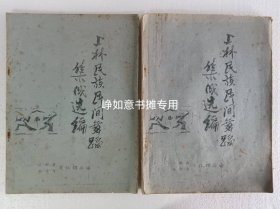 上林民族民间舞蹈
集成选编
上林民族民间舞蹈
集成选编
峥如意书摊专用